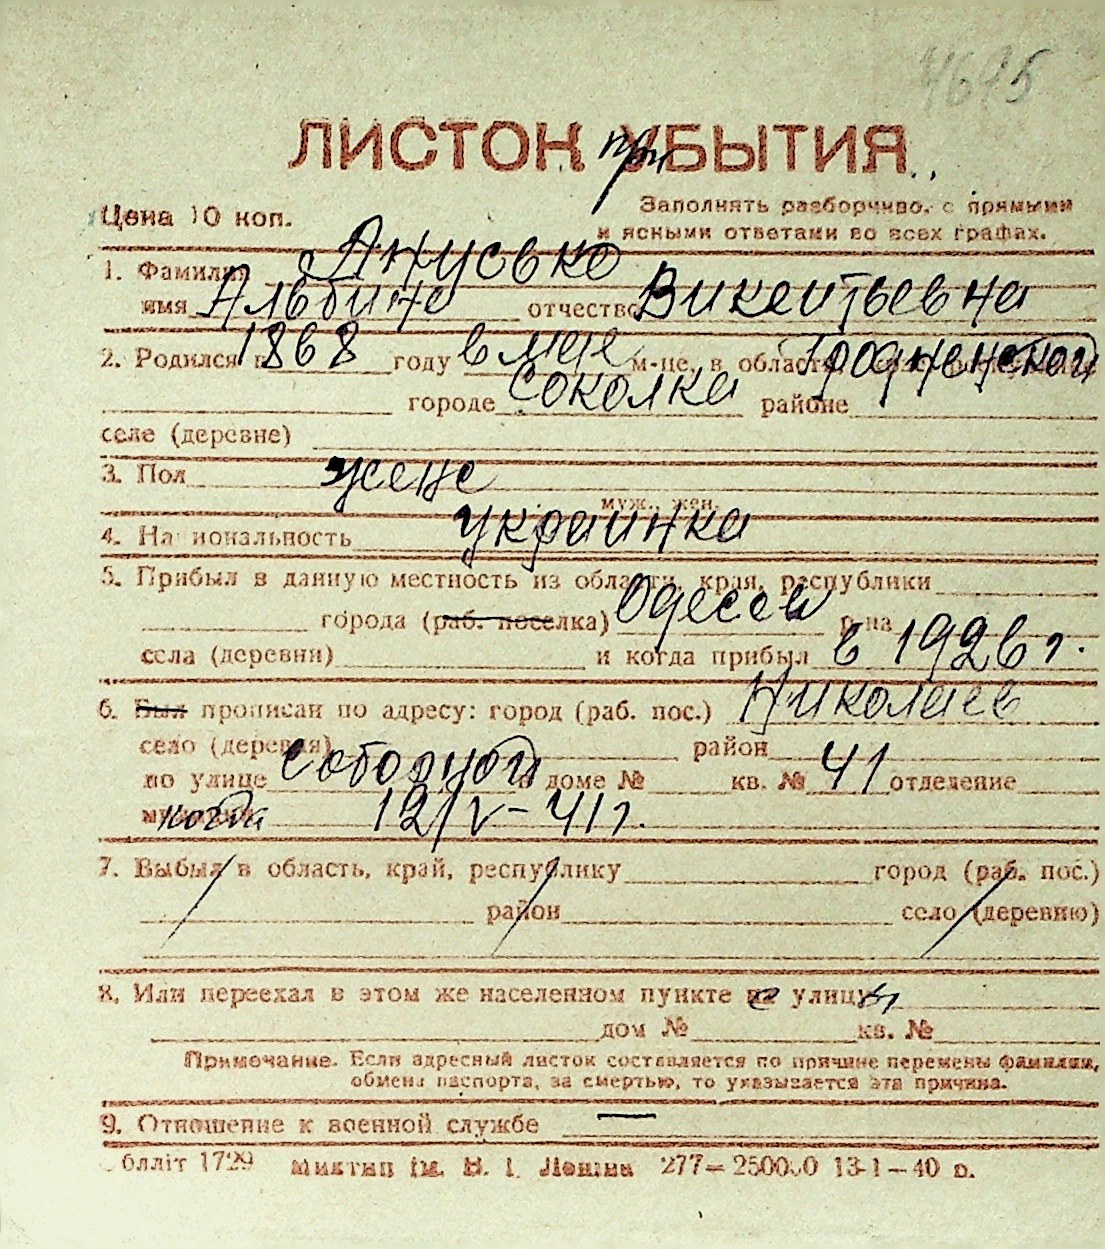 4695
ЛИСТОК при УБЫТИЯ
Цена 10 коп.
Заполнять разборчиво, с прямыми
и ясными ответами во всех графах.
1. Фамилия Анусько
имя Альбина отчество Викентьевна
2. Родился в 1868 году в мае м-це, в области, Гродненской
городе Соколка районе
селе (деревне)
3. Пол жене
муж., жен.
4. Национальность украинка
5. Прибыл в данную местность из области, края, республики
города (раб. поселка) Одессы р-на
села (деревни) и когда прибыл в 1926 г.
6. Был прописан по адресу: город (раб. пос.) Николаев
село (деревня) район
по улице Соборной доме № кв. № 41 отделение
когда 12/V-41 г.
7. Выбыл в область, край, республику город (раб. пос.)
район село (деревню)
8. Или переехал в этом же населенном пункте с улицы
дом № кв. №
Примечание. Если адресный листок составляется по причине перемены фамилии,
обмена паспорта, за смертью, то указывается эта причина.
9. Отношение к военной службе —
блліт 1729 Миктип ім. В. І. Леніна 277—250000 13-1—40 р.